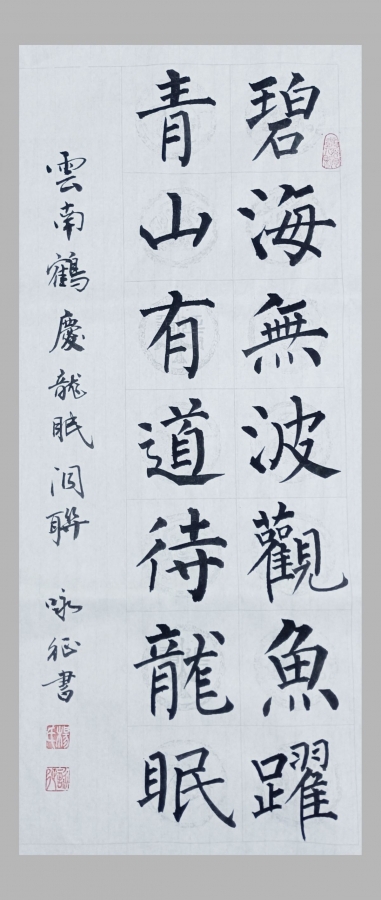 碧海無波觀魚躍
青山有道待龍眠
雲南鶴慶龍眠洞聯 咏征書